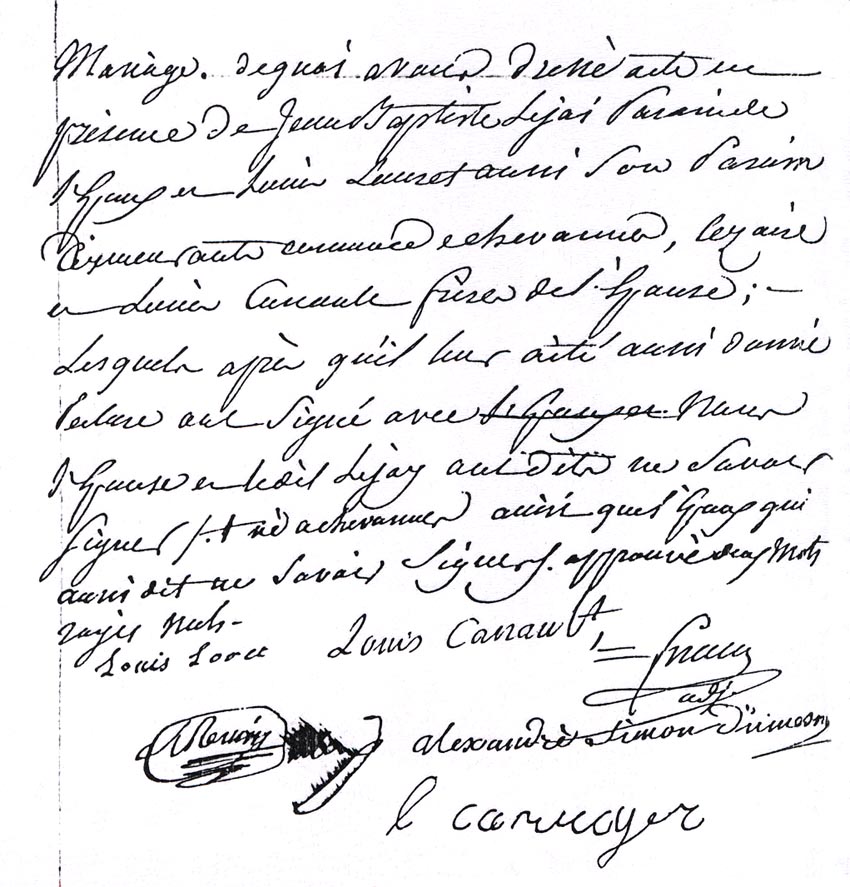 Mariage. de quoi avons dressé acte en
présence de Jean Baptiste Lejai Parain de
l'Epoux en Louis Louret aussi son Parain
Demeurants commune de chevannes, Cezaire
en Louis Canault frères de l'Epouse ; -
Lesquels après qu'il leur a été aussi donné
lecture ont signé avec Nous
l'Epouse en Lejay ont dits ne Savoir
signer /. + né a chevannes ainsi que l'Epoux qui
aussi dit ne Savoir Signer /. approuvé deux Mots
rayés nuls -
Louis Loret Louis Canault
adj.
alexandre Simon Dumesnil